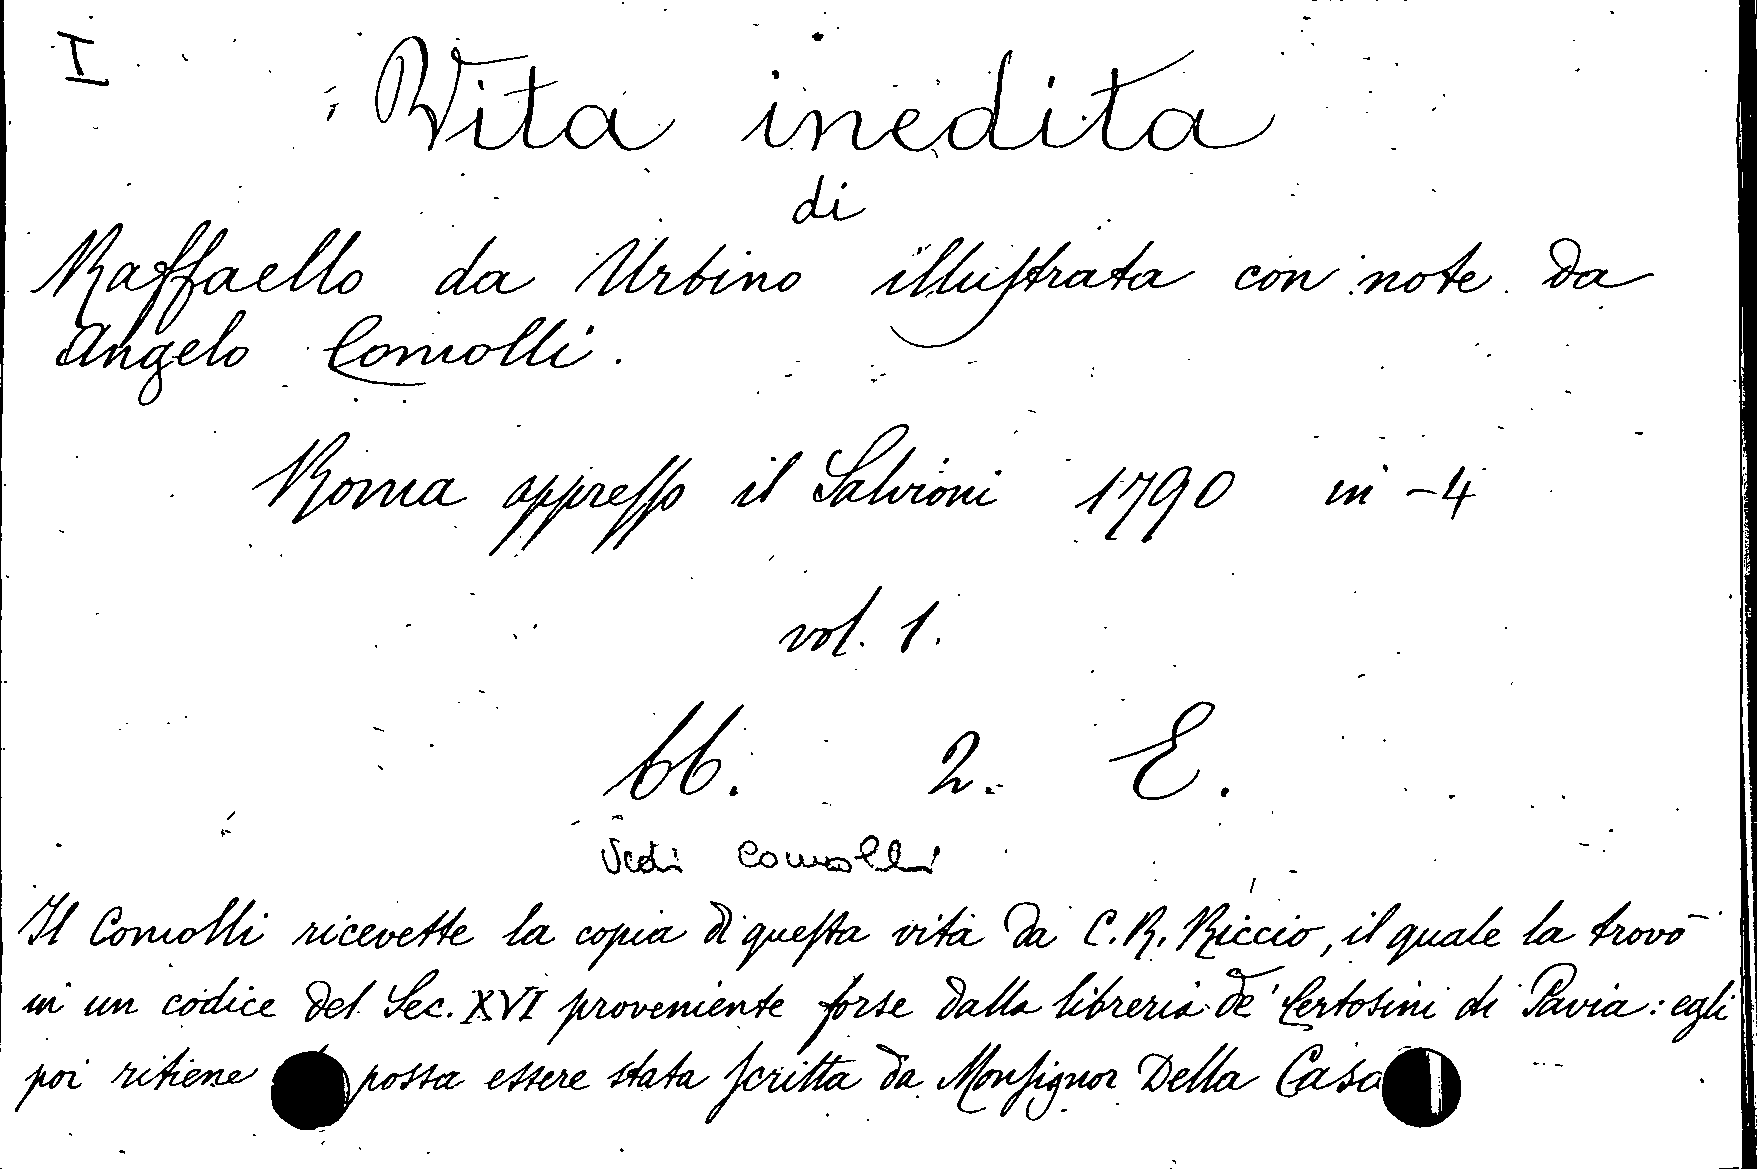 I
Vita inedita
di
Raffaello da Urbino illustrata con note da
Angelo Comolli.
Roma appresso il Salvioni 1790 in-4
vol. 1.
bb. 2. E.
Vedi Comolli
Il Comolli ricevette la copia di questa vita da C. R. Riccio, il quale la trovò
in un codice del Sec. XVI proveniente forse dalla libreria de' Certosini di Pavia: egli
poi ritiene possa essere stata scritta da Monsignor Della Casa